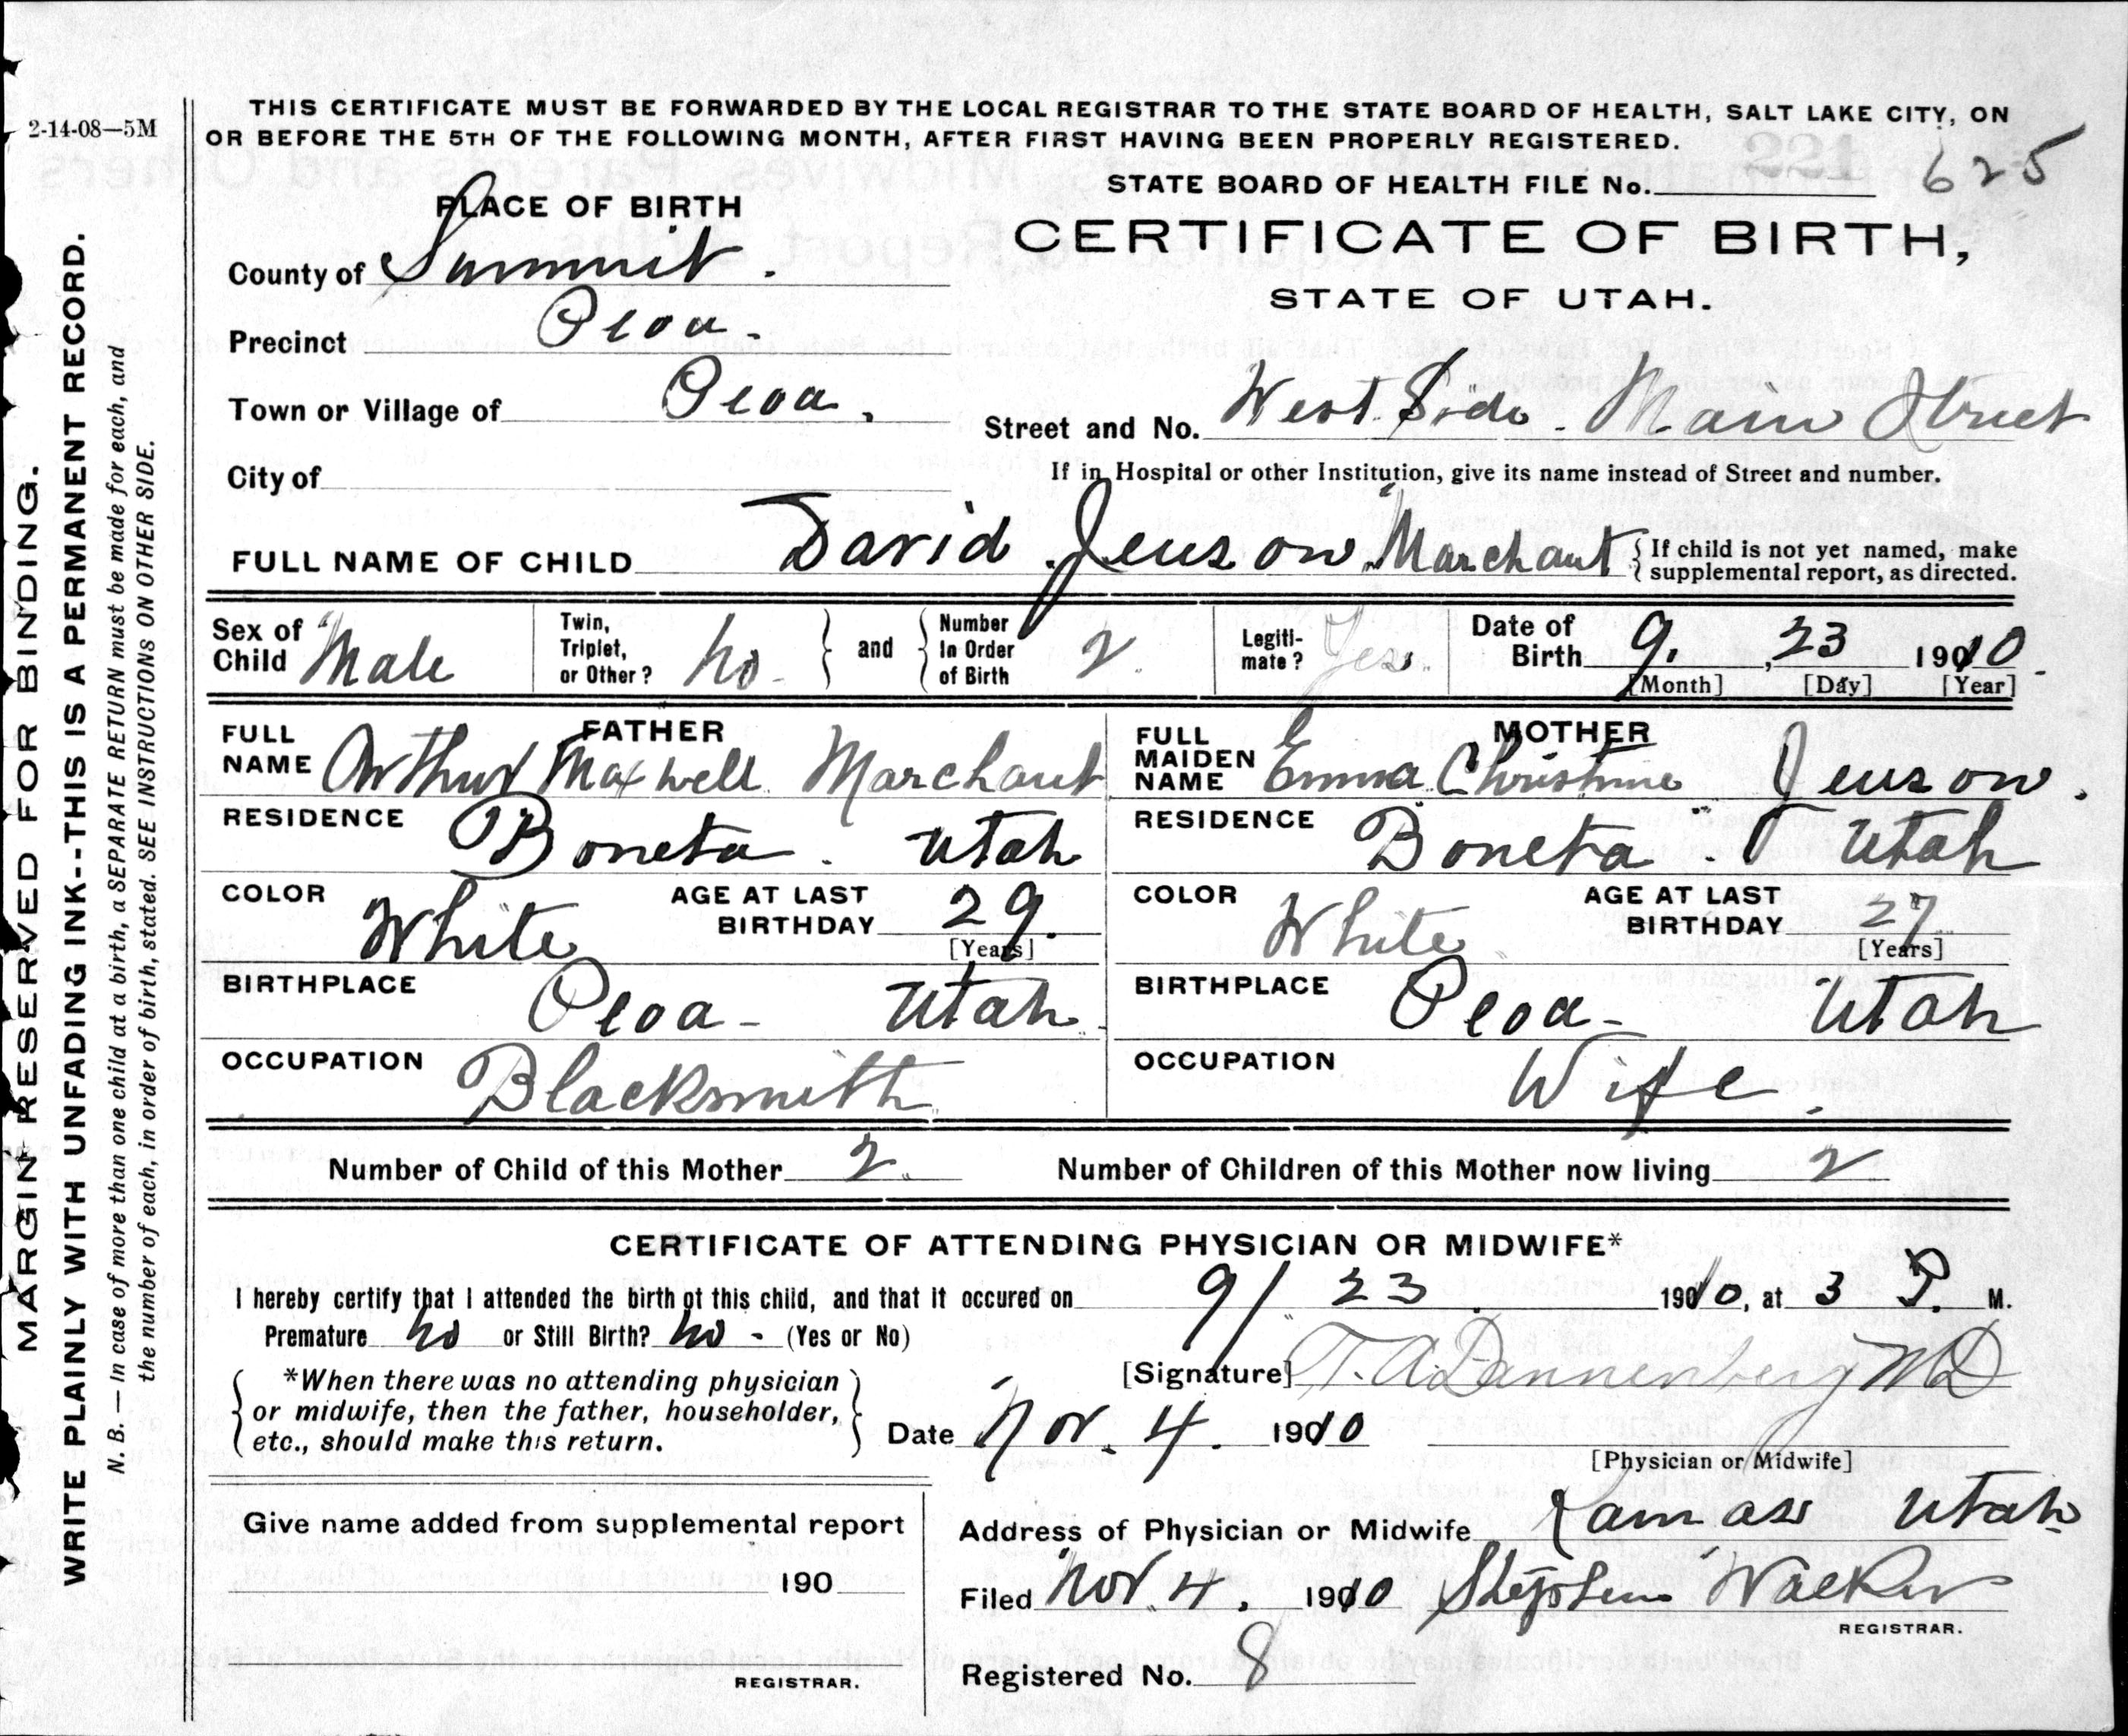 2-14-08—5M
THIS CERTIFICATE MUST BE FORWARDED BY THE LOCAL REGISTRAR TO THE STATE BOARD OF HEALTH, SALT LAKE CITY, ON
OR BEFORE THE 5TH OF THE FOLLOWING MONTH, AFTER FIRST HAVING BEEN PROPERLY REGISTERED.
221
STATE BOARD OF HEALTH FILE No. 625
PLACE OF BIRTH
CERTIFICATE OF BIRTH,
STATE OF UTAH.
County of Summit.
Precinct Peoa.
Town or Village of Peoa.
Street and No. West Side. Main Street
City of
If in Hospital or other Institution, give its name instead of Street and number.
FULL NAME OF CHILD David Jenson Marchant { If child is not yet named, make
supplemental report, as directed.
Sex of Child Male
Twin, Triplet, or Other? no } and { Number In Order of Birth 2
Legiti-mate? Yes.
Date of Birth 9. , 23 1910.
[Month] [Day] [Year]
FATHER
FULL NAME Arthur Maxwell Marchant
RESIDENCE Boneta. Utah
COLOR White
AGE AT LAST BIRTHDAY 29.
[Years]
BIRTHPLACE Peoa - Utah.
OCCUPATION Blacksmith
MOTHER
FULL MAIDEN NAME Emma Christine Jenson.
RESIDENCE Boneta. Utah
COLOR White
AGE AT LAST BIRTHDAY 27
[Years]
BIRTHPLACE Peoa - Utah
OCCUPATION Wife.
Number of Child of this Mother 2
Number of Children of this Mother now living 2
CERTIFICATE OF ATTENDING PHYSICIAN OR MIDWIFE*
I hereby certify that I attended the birth of this child, and that it occured on 9/23 1910, at 3 P. M.
Premature no or Still Birth? no - (Yes or No)
*When there was no attending physician
or midwife, then the father, householder,
etc., should make this return.
[Signature] T. A. Dannenberg MD
Date Nov. 4. 1910
[Physician or Midwife]
Give name added from supplemental report
190
REGISTRAR.
Address of Physician or Midwife Kamas Utah
Filed Nov. 4. 1910 Stephen Walker
REGISTRAR.
Registered No. 8
MARGIN RESERVED FOR BINDING.
WRITE PLAINLY WITH UNFADING INK--THIS IS A PERMANENT RECORD.
N. B. — In case of more than one child at a birth, a SEPARATE RETURN must be made for each, and
the number of each, in order of birth, stated. SEE INSTRUCTIONS ON OTHER SIDE.